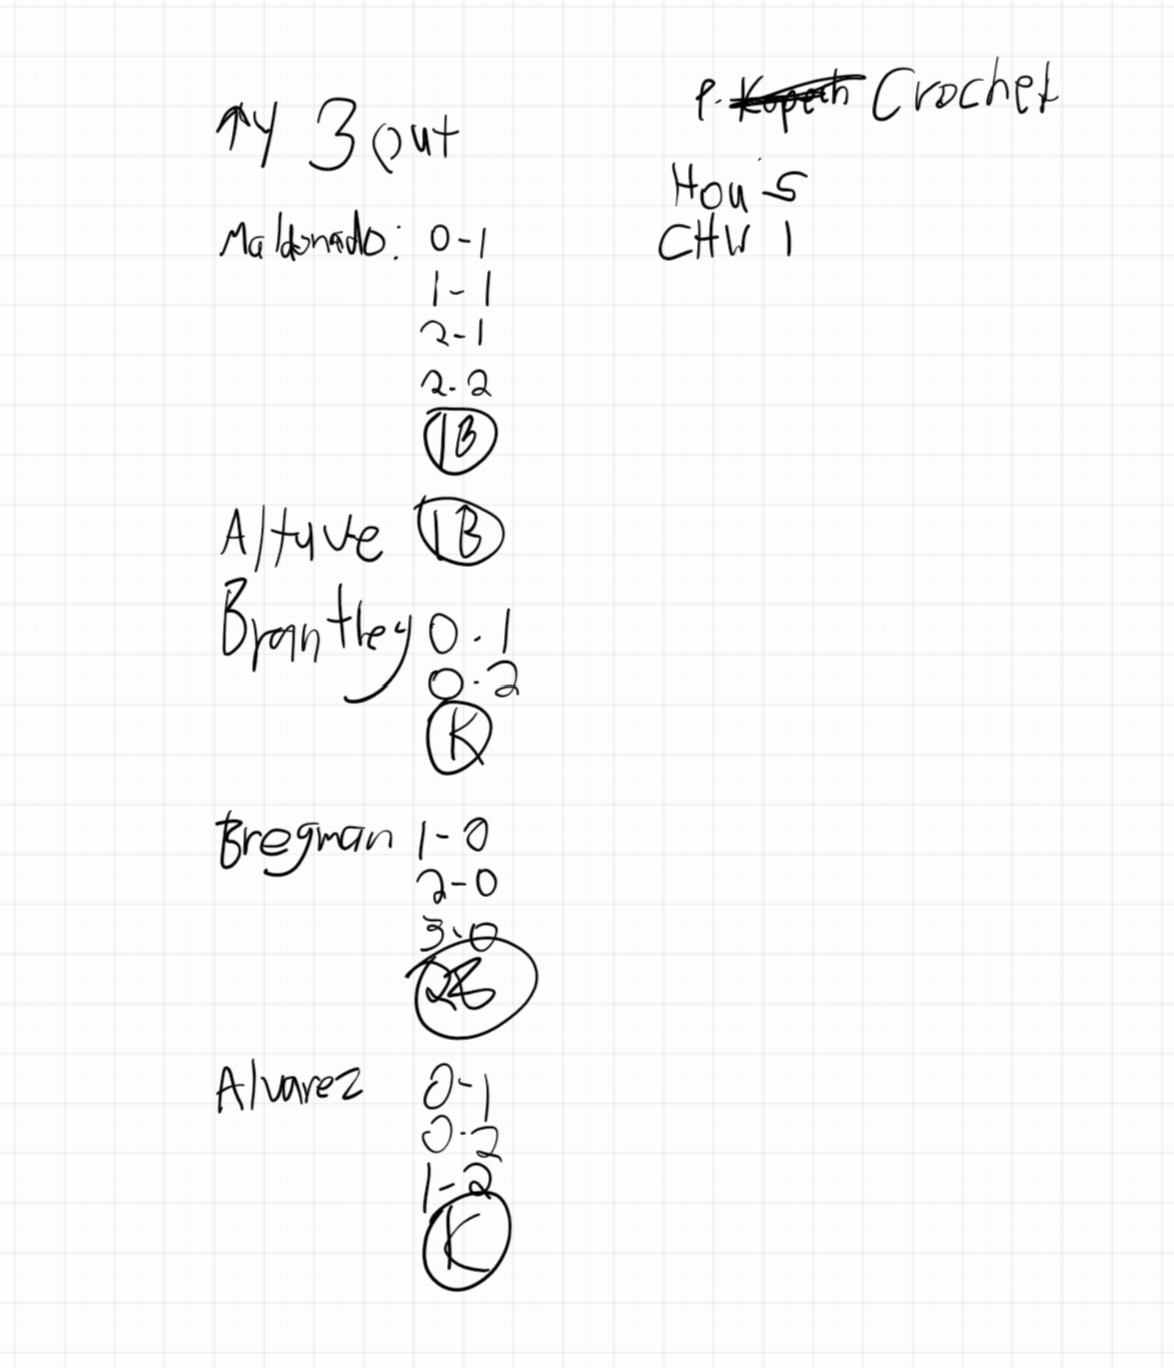 ↑4 3 out
P. Kopech Crochet
Hou 5
CHW 1
Maldonado: 0-1
1-1
2-1
2-2
1B
Altuve 1B
Brantley 0-1
0-2
K
Bregman 1-0
2-0
3-0
Alvarez 0-1
0-2
1-2
K